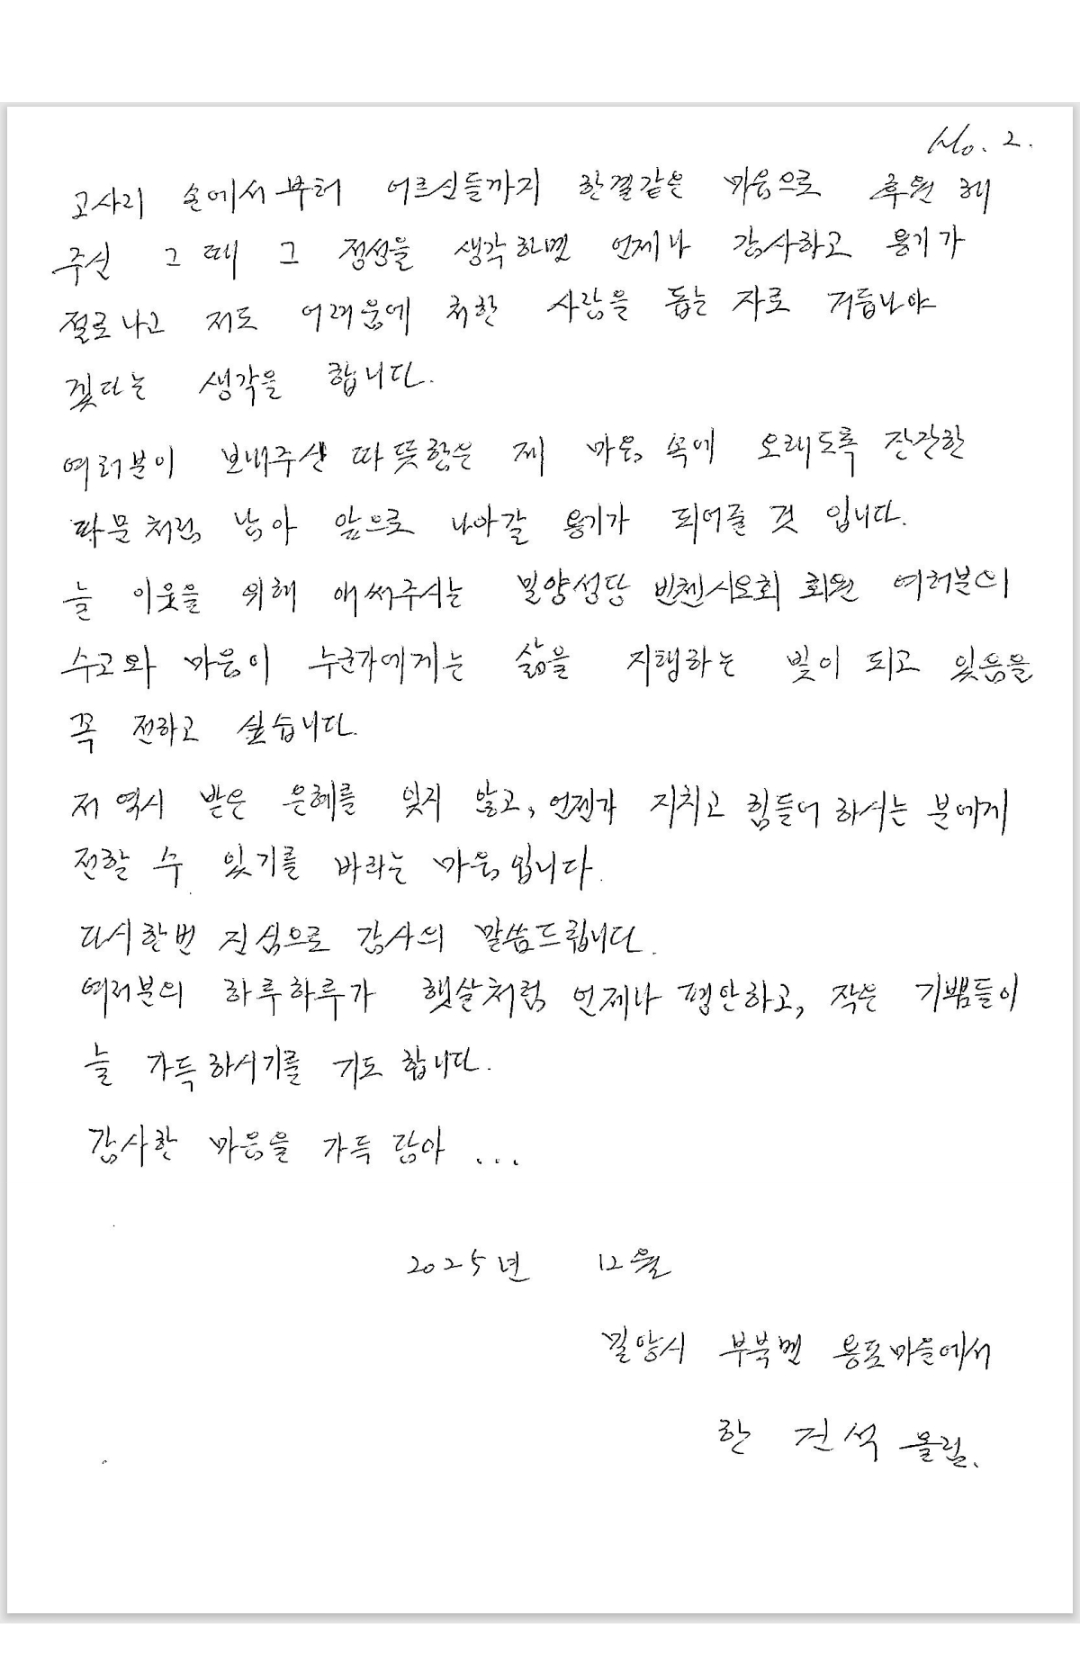 No. 2.
고사리 손에서부터 어르신들까지 한결같은 마음으로 후원 해
주신 그 때 그 정성을 생각하면 언제나 감사하고 용기가
절로나고 저도 어려움에 처한 사람을 돕는 자로 거듭나야
겠다는 생각을 합니다.
여러분이 보내주신 따뜻함은 제 마음 속에 오래도록 잔잔한
파문처럼 남아 앞으로 나아갈 용기가 되어줄 것 입니다.
늘 이웃을 위해 애써주시는 밀양성당 빈첸시오회 회원 여러분의
수고와 마음이 누군가에게는 삶을 지탱하는 빛이 되고 있음을
꼭 전하고 싶습니다.
저 역시 받은 은혜를 잊지 않고, 언젠가 지치고 힘들어 하시는 분에게
전할 수 있기를 바라는 마음입니다.
다시한번 진심으로 감사의 말씀드립니다.
여러분의 하루하루가 햇살처럼 언제나 평안하고, 작은 기쁨들이
늘 가득하시기를 기도 합니다.
감사한 마음을 가득 담아 ...
2025년 12월
밀양시 부북면 용포마을에서
한 건석 올림.